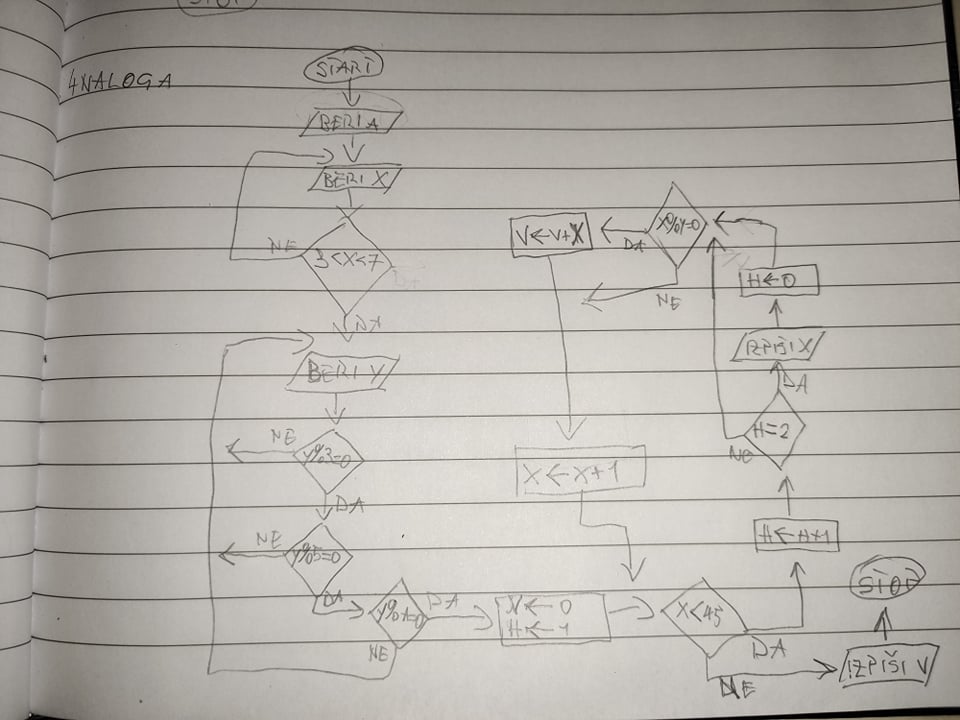 STOP
4NALOGA
START
BERI A
BERI X
3<X<7
NE
DA
BERI Y
Y%3=0
NE
DA
Y%5=0
NE
DA
Y%A=0
DA
NE
V←0
H←1
X<45
DA
NE
IZPIŠI V
STOP
H←H+1
H=2
NE
DA
IZPIŠI X
H←0
X%Y=0
DA
NE
V←V+X
X←X+1